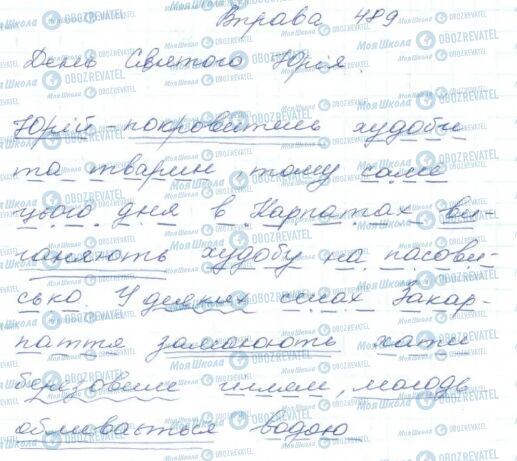 Вправа 489
День Святого Юрія.
Юрій - покровитель худоби
та тварин, тому саме
цього дня в Карпатах ви-
ганяють худобу на пасови-
сько. У деяких селах Закар-
паття замають хати
березовим гіллям, молодь
обливається водою